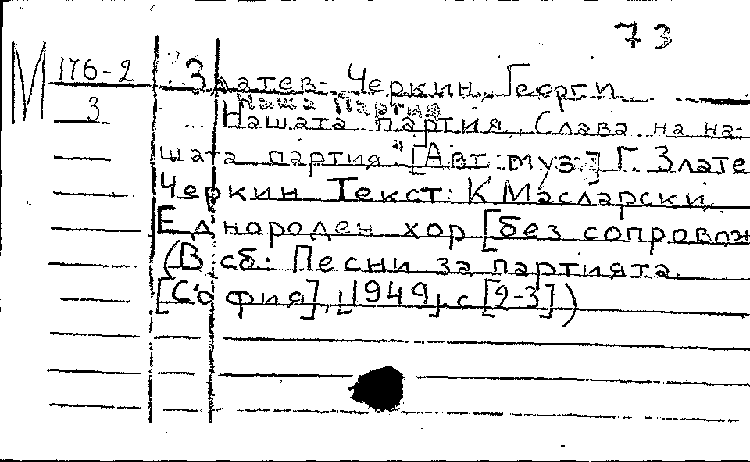 73
М 176-2 Златев-Черкин, Георги
Наша Партия
3 Нашата партия. Слава на на-
шата партия. [Авт. муз.] Г. Злате
Черкин Текст: К Масларски.
Еднороден хор [без сопровож
(В сб: Песни за партията.
[София], [1949], с [2-3])